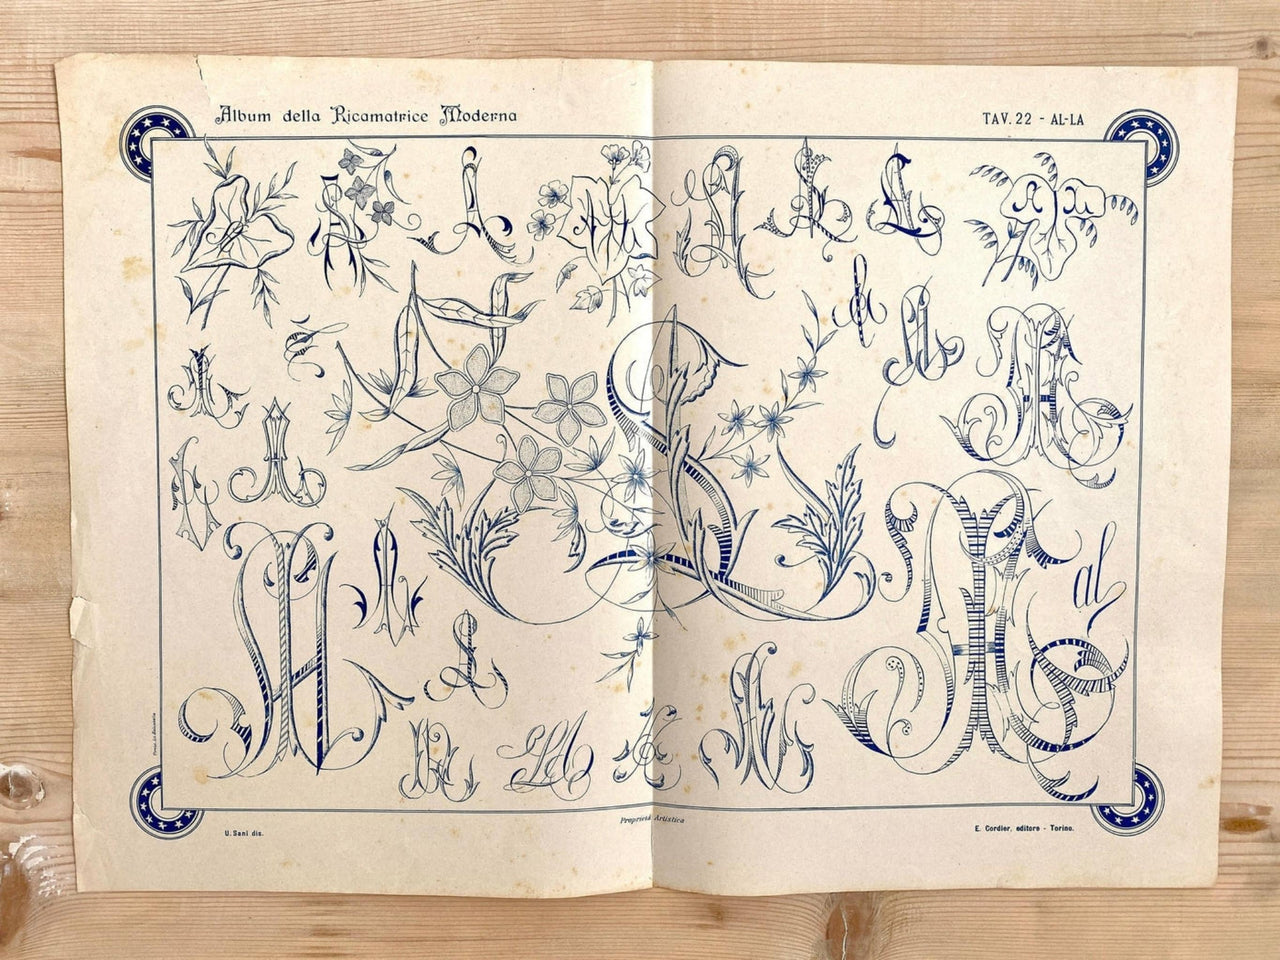 Album della Ricamatrice Moderna
TAV. 22 - AL-LA
al
U. Sani dis.
Proprietà Artistica
E. Cordier, editore - Torino.